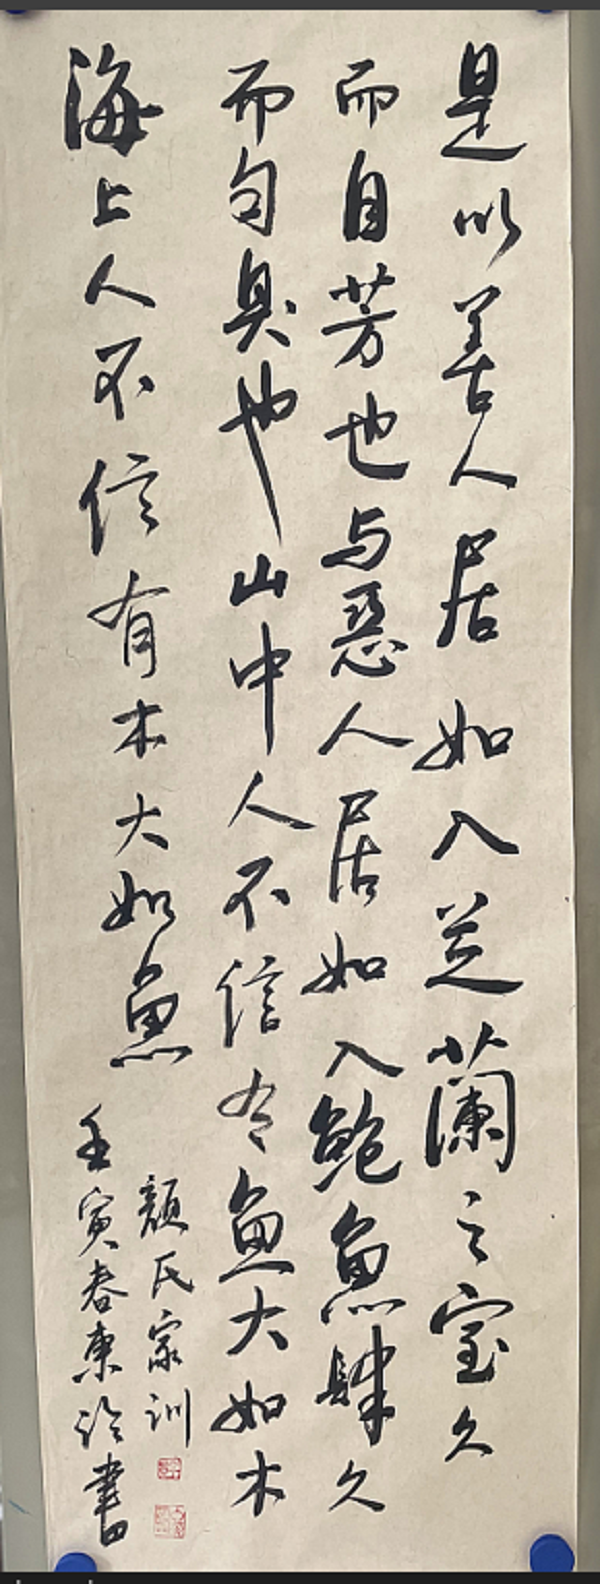 是以善人居如入芝蘭之室久
而自芳也与惡人居如入鮑魚肆久
而自臭也山中人不信有魚大如木
海上人不信有木大如魚
顏氏家訓
壬寅春書